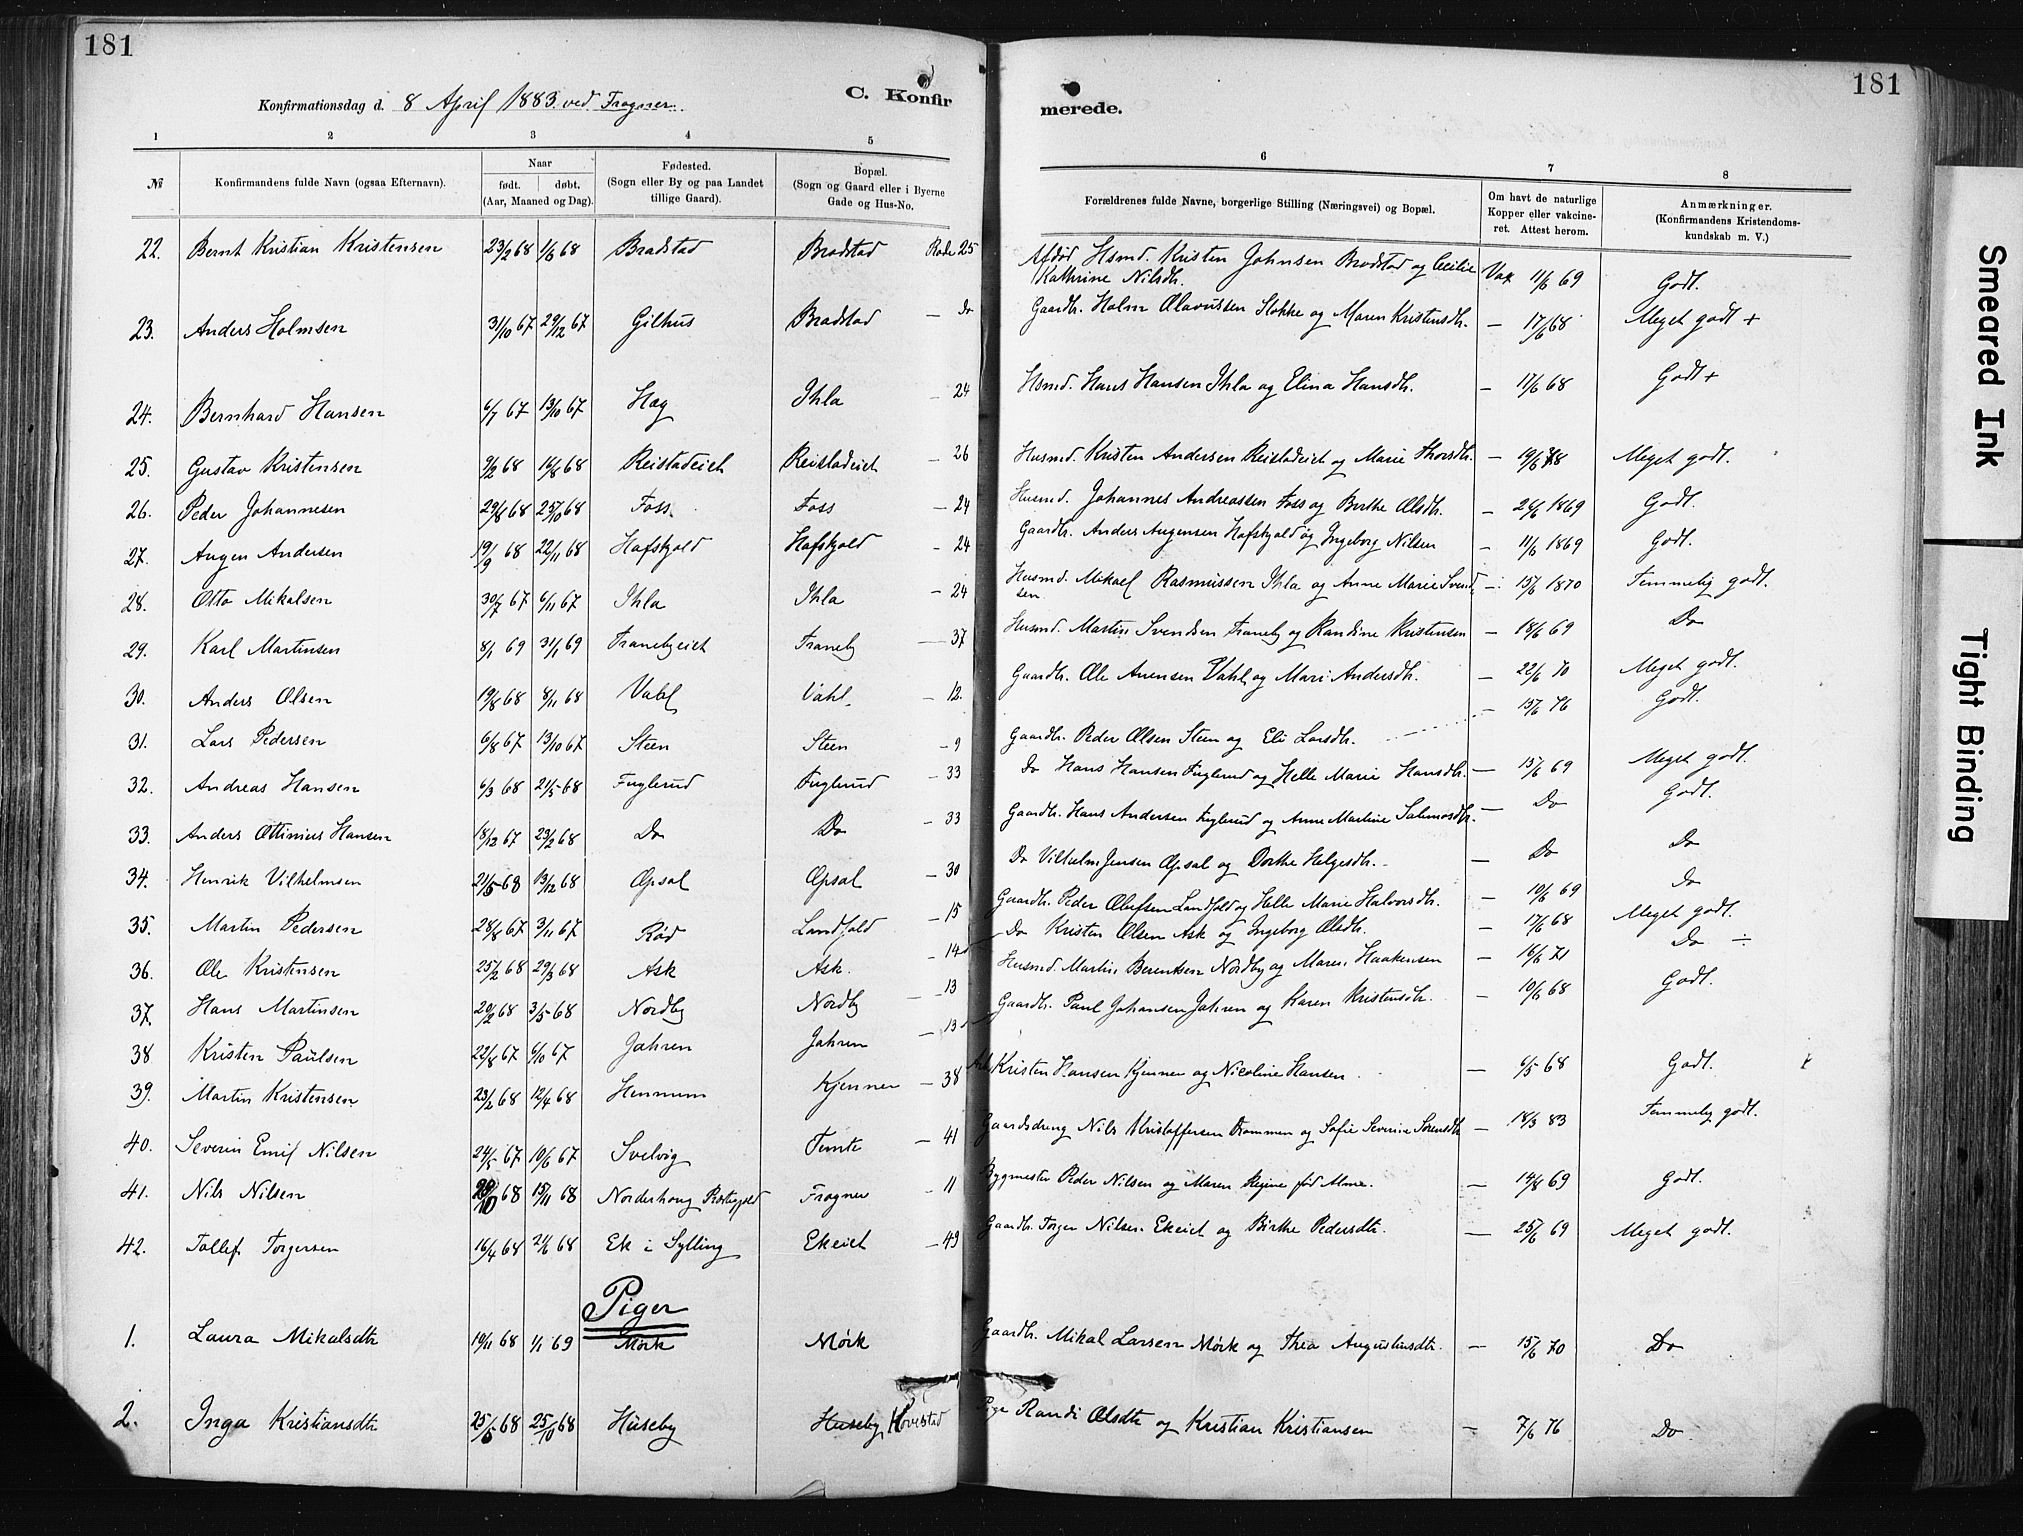 181
181
Konfirmationsdag d. 8 April 1883 ved Frogner.
C. Konfir
merede.
1 2 3 4 5 6 7 8
№ Konfirmandens fulde Navn (ogsaa Efternavn).
Naar
født. døbt.
(Aar, Maaned og Dag).
Fødested.
(Sogn eller By og paa Landet
tillige Gaard).
Bopæl.
(Sogn og Gaard eller i Byerne
Gade og Hus-No.
Forældrenes fulde Navne, borgerlige Stilling (Næringsvei) og Bopæl.
Om havt de naturlige
Kopper eller vakcine-
ret. Attest herom.
Anmærkninger.
(Konfirmandens Kristendoms-
kundskab m. V.)
22. Bernt Kristian Kristensen 23/2 68 1/6 68 Bradstad Bradstad Rode 25 Afdød Hsmd. Kristen Johnsen Bradstad og Cecilie Kathrine Nilsdtr. Vax 11/6 69 Godt.
23. Anders Holmsen 31/10 67 29/12 67 Gilhus Bradstad — Do Gaardbr. Holm Olavussen Stokke og Maren Kristensdtr. — 17/6 68 Meget godt +
24. Bernhard Hansen 6/7 67 13/10 67 Hæg Ihla — 24 Hsmd. Hans Hansen Ihla og Elina Hansdtr. — 17/6 68 Godt +
25. Gustav Kristensen 9/2 68 16/8 68 Reistadeiet Reistadeiet — 26 Husmd. Kristen Andersen Reistadeiet og Marie Thorsdtr. — 19/6 78 Meget godt.
26. Peder Johannesen 29/8 68 25/10 68 Foss. Foss — 24 Husmd. Johannes Andreassen Foss og Birthe Olsdtr. — 26/6 1869 Godt.
27. Augen Andersen 19/9 68 22/11 68 Hafskjold Hafskjold — 24 Gaardbr. Anders Augensen Hafskjold og Ingeborg Nilsen — 11/6 1869 Godt.
28. Otto Mikalsen 30/7 67 6/11 67 Ihla Ihla — 24 Husmd. Mikael Rasmussen Ihla og Anne Marie Svendsen — 15/6 1870 Temmelig godt.
29. Karl Martinsen 8/1 69 31/1 69 Tranebyeiet Traneby — 37 Husmd. Martin Svendsen Traneby og Randine Kristensen — 18/6 69 Do
30. Anders Olsen 19/8 68 8/11 68 Vahl Vahl. — 12. Gaardbr. Ole Arensen Vahl og Mari Andersdtr. — 22/6 70 Meget godt.
31. Lars Pedersen 6/8 67 13/10 67 Steen Steen — 9 Gaardbr. Peder Olsen Steen og Eli Larsdtr. — 15/6 76 Godt.
32. Andreas Hansen 6/3 68 21/5 68 Fuglerud Fuglerud — 33 Do Hans Hansen Fuglerud og Helle Marie Hansdtr. — 15/6 69 Meget godt.
33. Anders Ottinius Hansen 18/12 67 23/2 68 Do Do — 33 Gaardbr. Hans Andersen Fuglerud og Anne Martine Salmosdtr. — Do Godt.
34. Henrik Vilhelmsen 21/5 68 13/12 68 Opsal Opsal — 30 Do Vilhelm Jensen Opsal og Dorthe Helgesdtr. — Do Do
35. Martin Pedersen 28/8 67 3/11 67 Rød Landfald — 15 Gaardbr. Peder Olufsen Landfald og Helle Marie Halvorsdtr. — 10/6 69 Do
36. Ole Kristensen 25/2 68 29/3 68 Ask Ask. — 14 Do Kristen Olsen Ask og Ingeborg Olsdtr. — 17/6 68 Meget godt.
37. Hans Martinsen 20/2 68 3/5 68 Nordby Nordby — 13 Husmd. Martin Berentsen Nordby og Maren Haakensen — 16/6 71 Do ÷
38 Kristen Paulsen 22/8 67 6/10 67 Jahren Jahren — 13 Gaardbr. Paul Johansen Jahren og Karen Kristensdtr. — 10/6 68 Godt.
39. Martin Kristensen 23/2 68 12/4 68 Hennum Kjenner — 38 Kristen Hansen Kjenner og Nicoline Hansen — 6/5 68 Godt.
40. Severin Emil Nilsen 24/5 67 10/6 67 Svelvig Temte — 41 Gaardsdreng Nils Kristoffersen Drammen og Sofie Severine Sørensdtr — 18/3 83 Temmelig godt.
41. Nils Nilsen 68 15/11 68 Norderhoug Frogner — 11 Bygmester Peder Nilsen og Maren Regine født — 14/8 69 Godt.
42. Tollef Torgersen 16/4 68 21/6 68 Ek i Sylling Ekeiet — 49 Gaardbr. Torger Nilsen Ekeiet og Birthe Pedersdtr. — 25/6 69 Meget godt.
Piger
1. Laura Mikalsdtr 19/11 68 1/1 69 Mørk Mørk Gaardbr. Mikal Larsen Mørk og Thea Augustinusdtr. — 15/6 70 Do
2. Inga Kristiansdtr 25/5 68 25/10 68 Huseby Huseby Hovestad Pige Randi Olsdtr og Kristian Kristiansen — 7/6 76 Do
Smeared Ink
Tight Binding